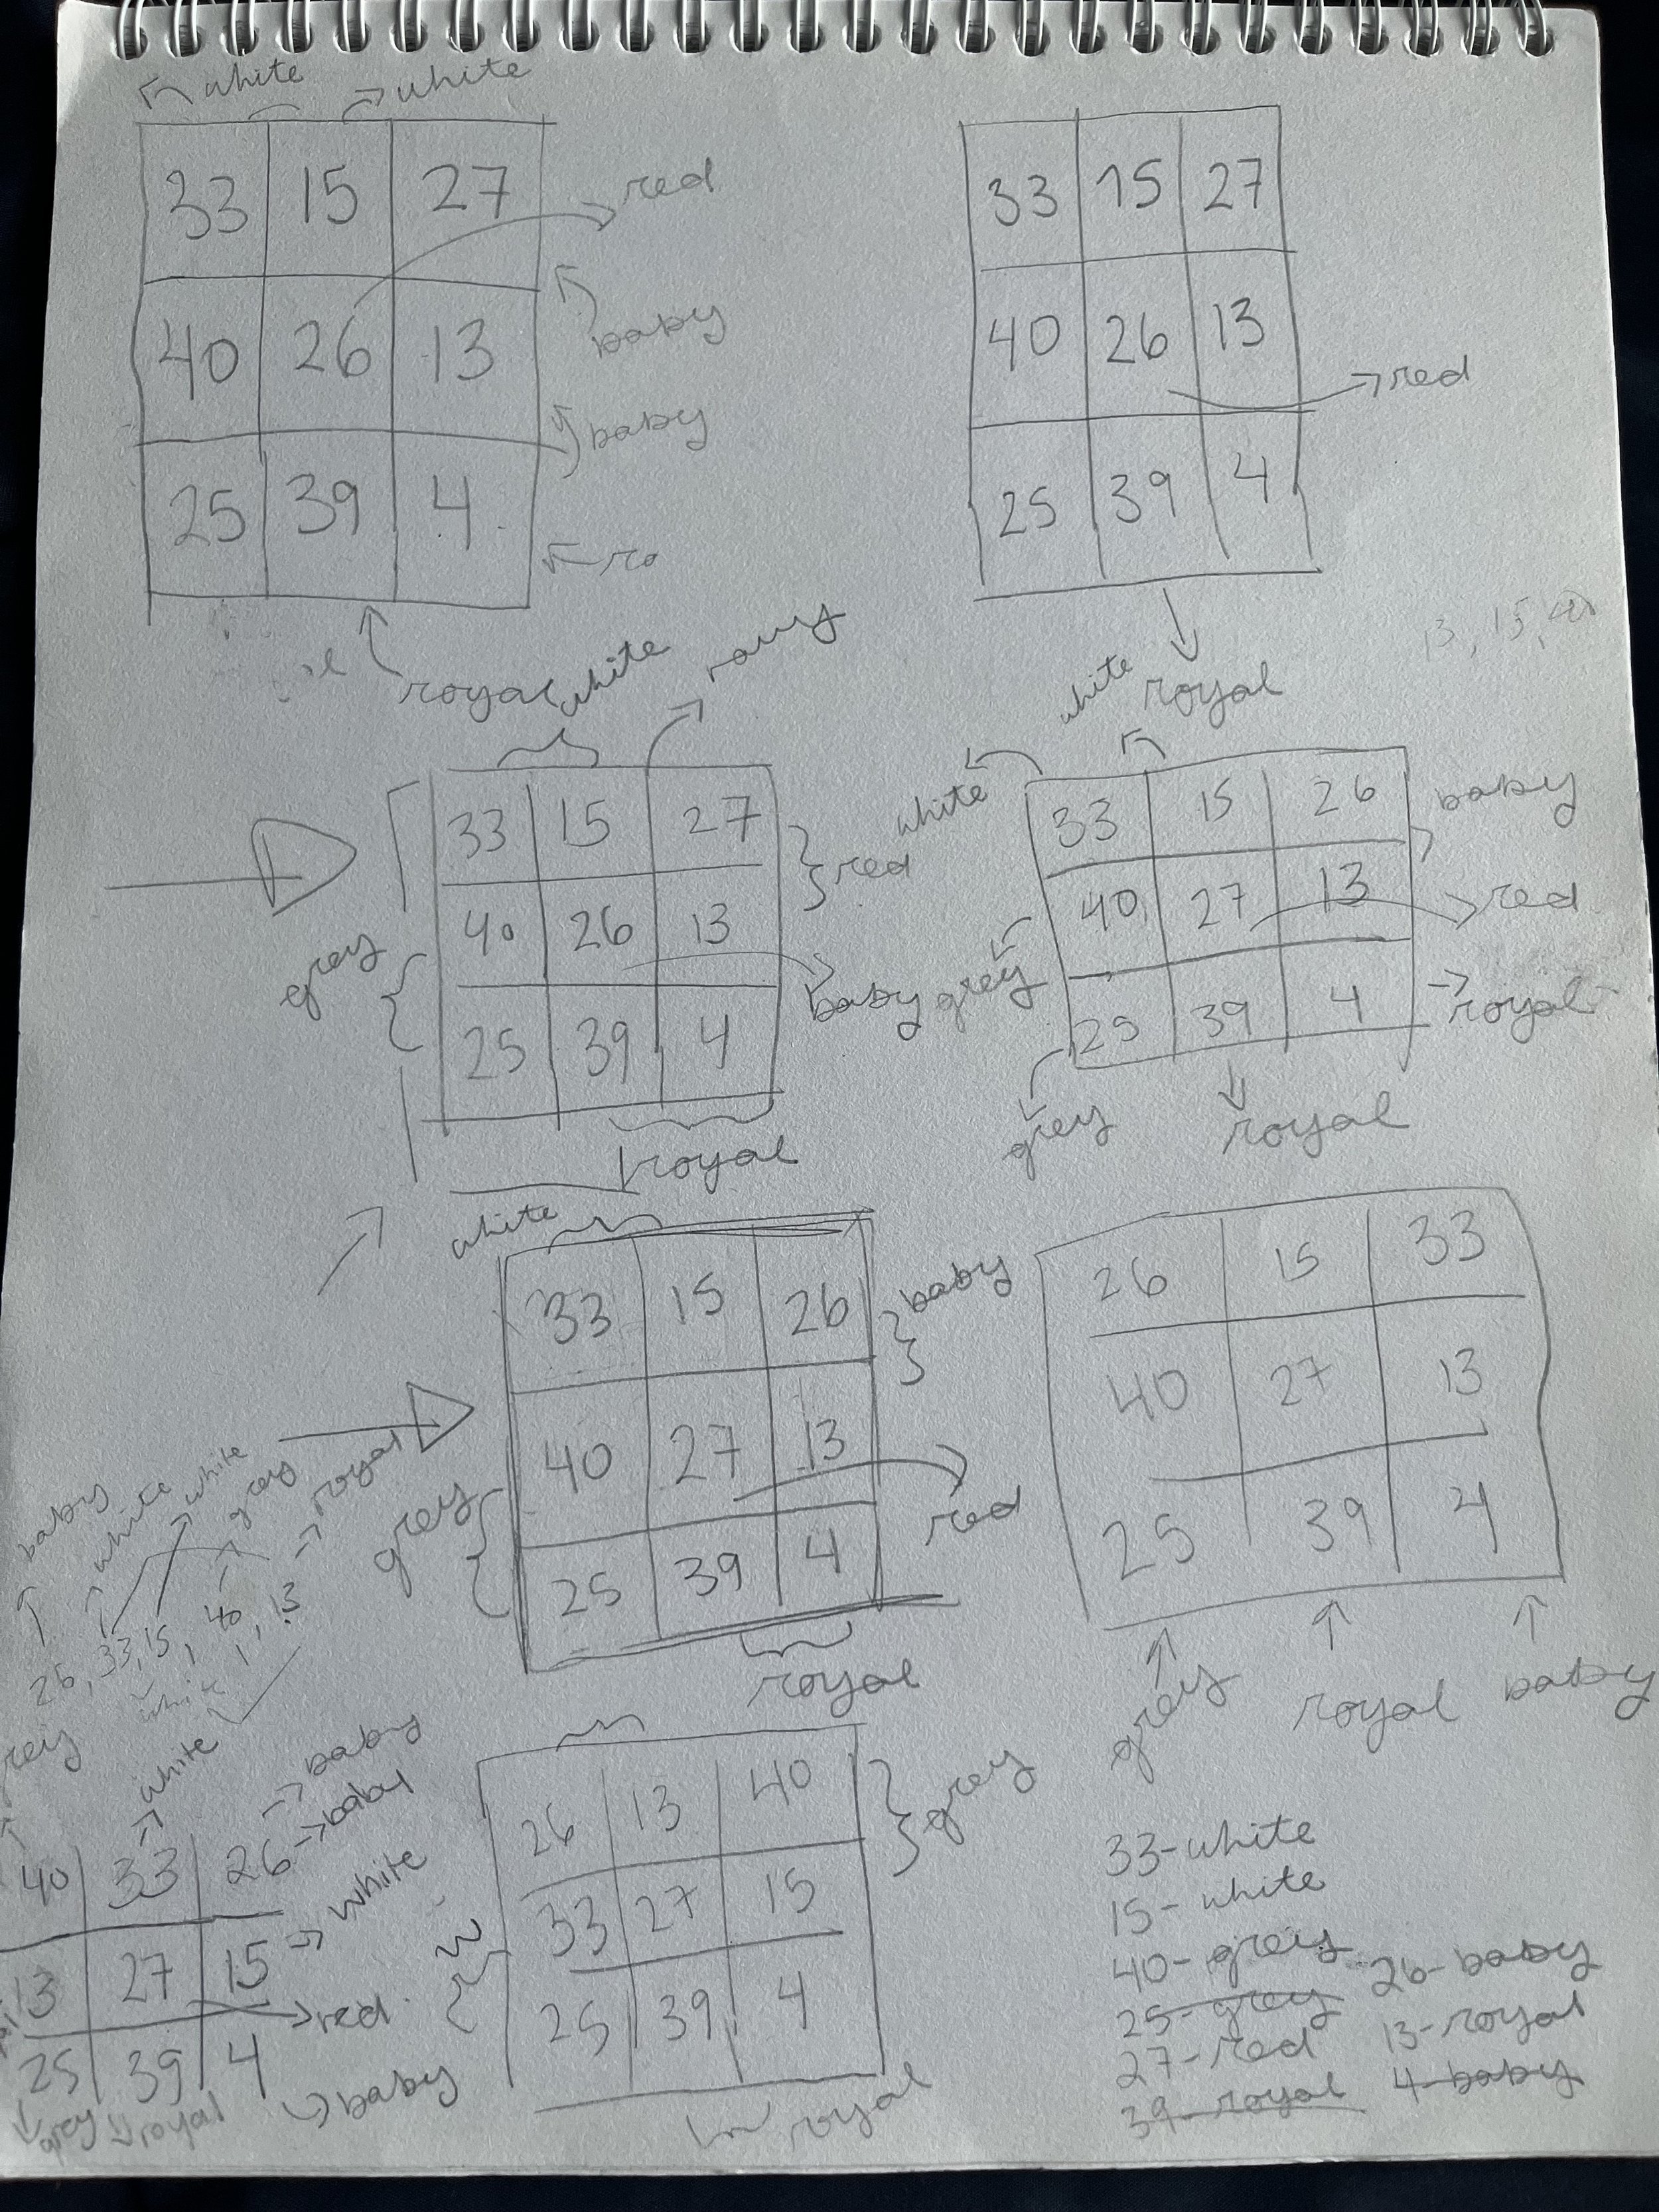 white white
33 15 27
red
40 26 13
baby
baby
25 39 4
ro
royal
33 15 27
40 26 13
red
25 39 4
royal
13, 15,
white
33 15 27
red
40 26 13
grey
baby
25 39 4
royal
white
white
33 15 26
baby
40 27 13
red
grey
25 39 4
royal
grey
royal
white
33 15 26
baby
40 27 13
grey
red
25 39 4
royal
26 15 33
40 27 13
25 39 4
grey royal baby
baby white white grey royal
26, 33, 15, 40, 13
white
grey
white
baby
baby
40 33 26
white
13 27 15
red
25 39 4
baby
grey royal
26 13 40
grey
33 27 15
W
25 39 4
royal
33-white
15-white
40-grey
25-grey
27-red
39-royal
26-baby
13-royal
4-baby